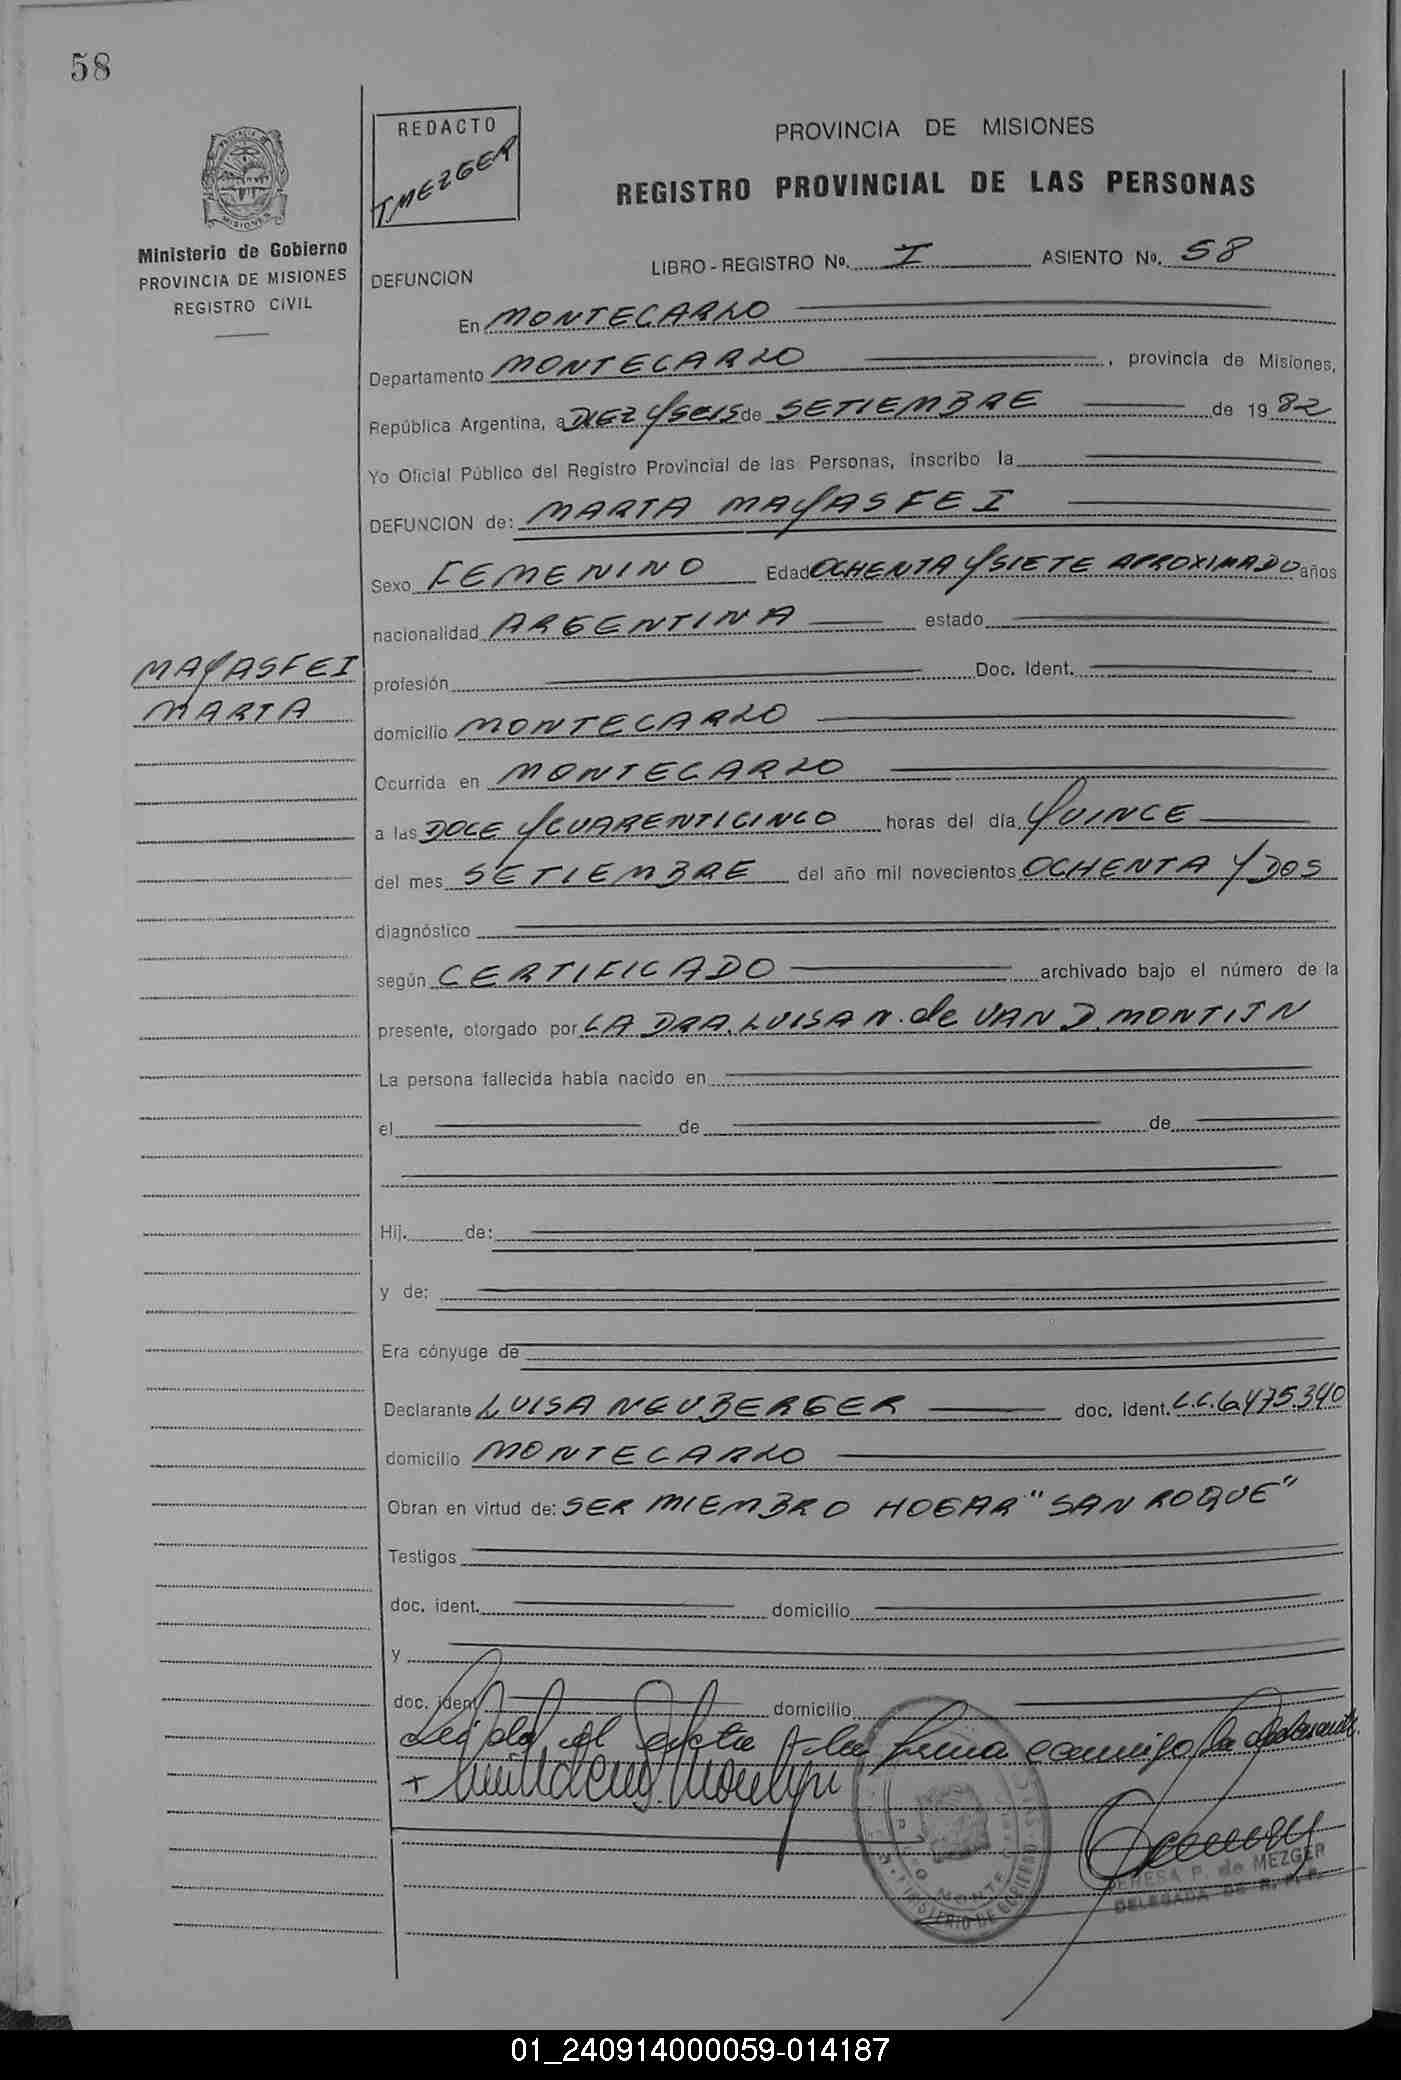 58
REDACTO
T MEZGER
PROVINCIA DE MISIONES
REGISTRO PROVINCIAL DE LAS PERSONAS
MISIONES
Ministerio de Gobierno
PROVINCIA DE MISIONES
REGISTRO CIVIL
DEFUNCION
LIBRO - REGISTRO Nº. I ASIENTO Nº. 58
En MONTECARLO
Departamento MONTECARLO , provincia de Misiones,
República Argentina, a DIEZ Y SEIS de SETIEMBRE de 1982
Yo Oficial Público del Registro Provincial de las Personas, inscribo la
DEFUNCION de: MARTA MAYASFEI
Sexo FEMENINO Edad OCHENTA Y SIETE APROXIMADO años
nacionalidad ARGENTINA estado
MAYASFEI
MARTA
profesión Doc. Ident.
domicilio MONTECARLO
Ocurrida en MONTECARLO
a las DOCE Y CUARENTICINCO horas del día QUINCE
del mes SETIEMBRE del año mil novecientos OCHENTA Y DOS
diagnóstico
según CERTIFICADO archivado bajo el número de la
presente, otorgado por LA DRA. LUISA N. de VAN D. MONTIJN
La persona fallecida había nacido en
el de de
Hij. de:
y de:
Era cónyuge de
Declarante LUISA NEUBERGER doc. ident. L.C. 6.475.340
domicilio MONTECARLO
Obran en virtud de: SER MIEMBRO HOGAR "SAN ROQUE"
Testigos
doc. ident. domicilio
y
doc. ident. domicilio
Leída el Acta la firma conmigo la declarante.
MINISTERIO DE GOBIERNO
TERESA P. de MEZGER
DELEGADA DE R. P. P.
01_240914000059-014187